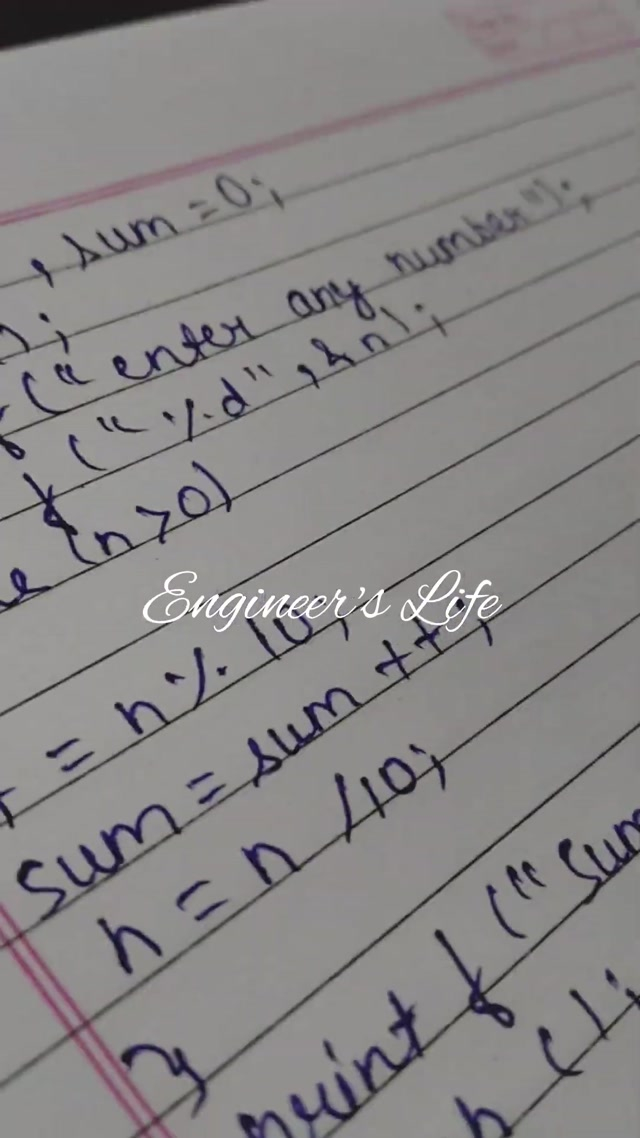 , sum = 0;
);
("enter any number");
("%d", &n);
(n>0)
Engineer's Life
= n % 10;
sum = sum ++;
n = n /10;
}
printf ("sum
();